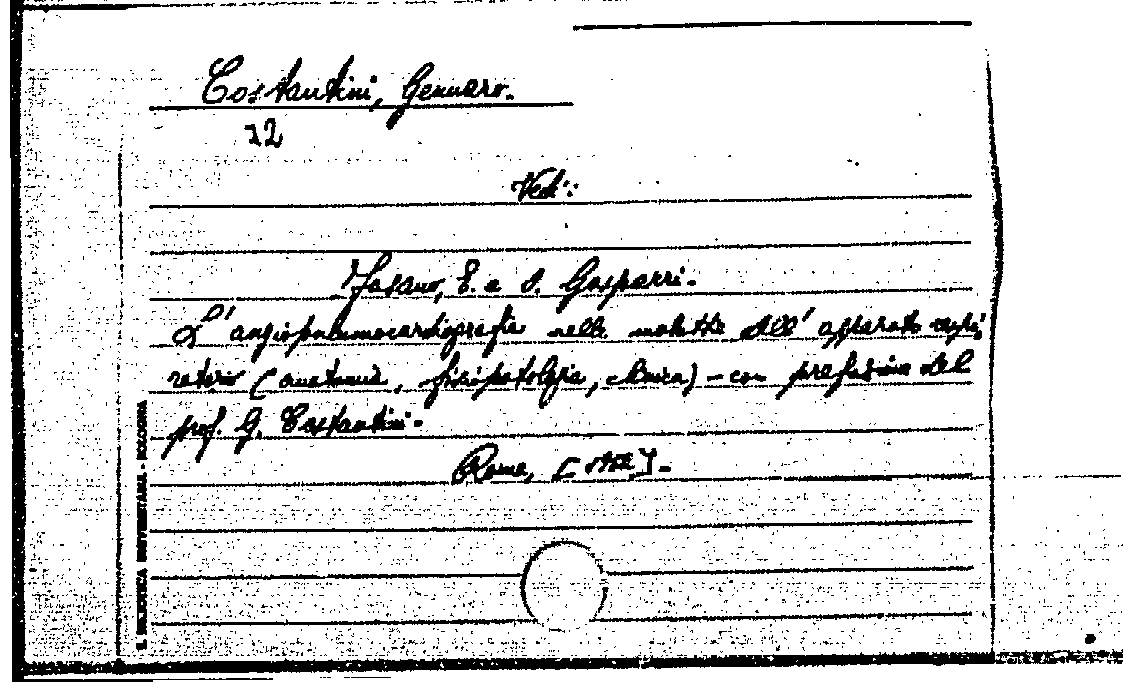 Costantini, Gennaro.
12
Vedi:
Fasano, E. e O. Gasparri.
L'angiopneumocardiografia nelle malattie dell'apparato respi
ratorio (anatomia, fisiopatologia, clinica) - con prefazione del
prof. G. Costantini.
Roma,
BIBLIOTECA UNIVERSITARIA - BOLOGNA